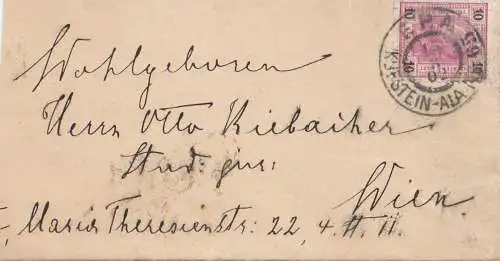 10 10
10 10
K.K. FAHRENDES POSTAMT
KUFSTEIN-ALA
Wohlgeboren
Herrn Otto Kiebacher
Stud: jur:
Wien
I, Maria Theresienstr: 22, 4. St. 11.